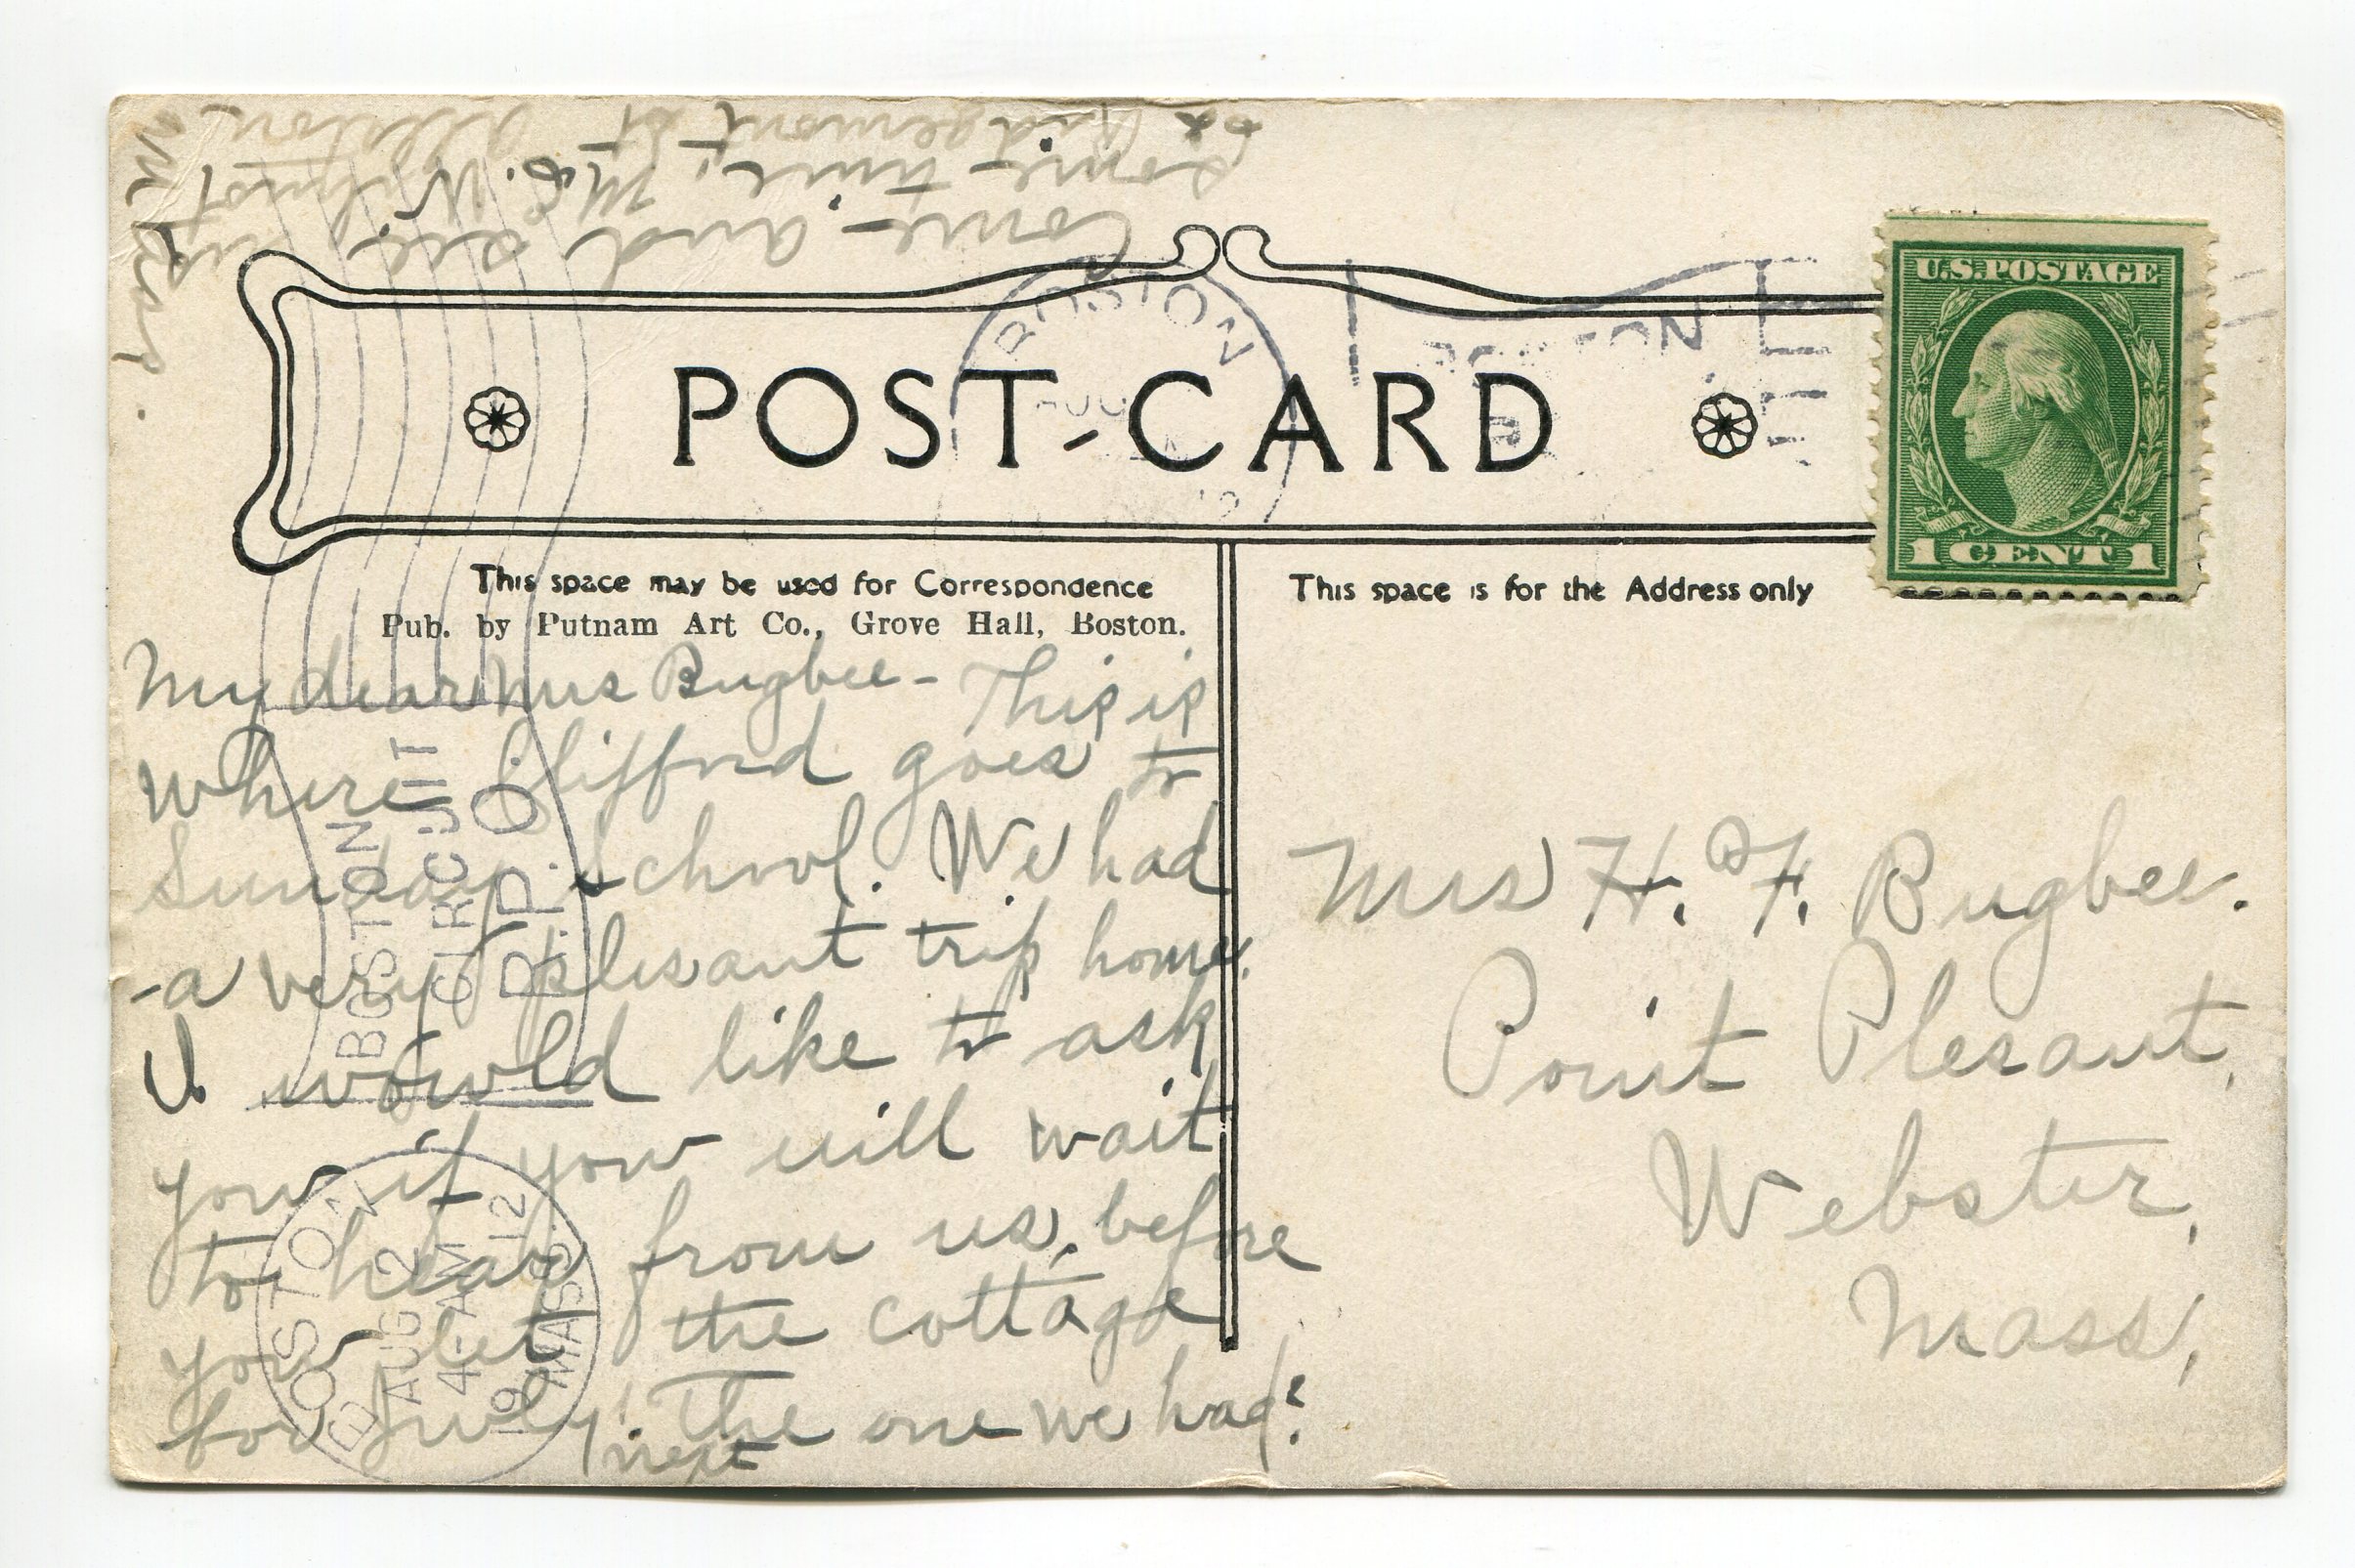 POST-CARD
U.S. POSTAGE
1 CENT 1
This space may be used for Correspondence
Pub. by Putnam Art Co., Grove Hall, Boston.
My dear Mrs Bugbee - This is
where Clifford goes to
Sunday School. We had
a very plesant trip home.
I would like to ask
you if you will wait
to hear from us, before
you let the cottage
for July, the one we had?
next
Come - and see us
some time, M. E. W.
Ridgemont St Allston
Mass.
This space is for the Address only
Mrs H. F. Bugbee.
Point Plesant,
Webster,
Mass,
BOSTON
AUG
BOSTON
BOSTON
CIRCUIT
R.P.O.
BOSTON
AUG 2
4-AM
1912
MASS.